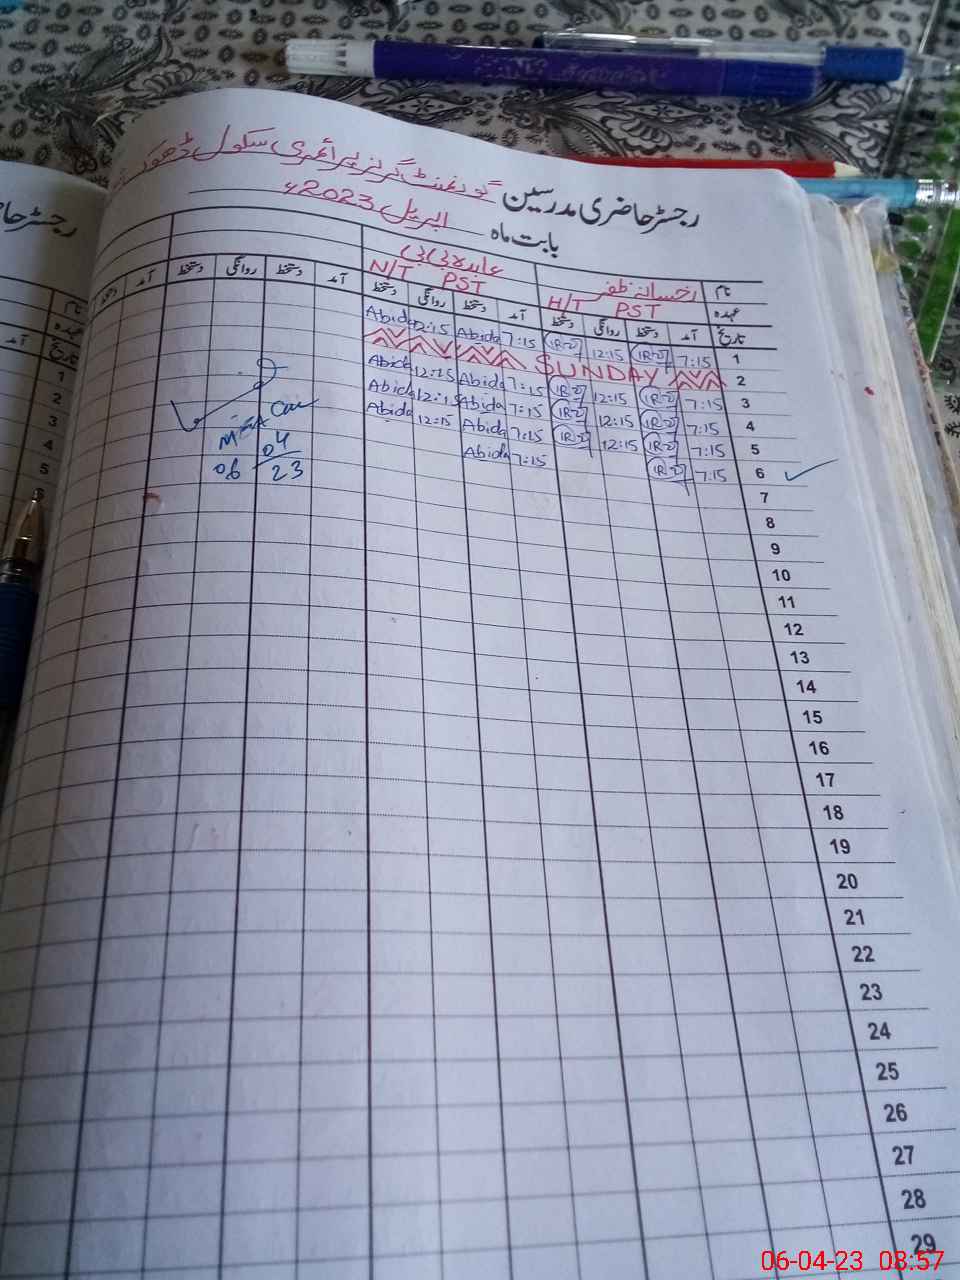 رجسٹر حاضری مدرسین گورنمنٹ گرلز پرائمری سکول ڈھوک
بابت ماہ اپریل 2023ء
نام رخسانہ ظفر عابدہ بی بی
عہدہ H/T PST N/T PST
تاریخ آمد دستخط روانگی دستخط آمد دستخط روانگی دستخط آمد دستخط روانگی دستخط آمد دستخط
1 7:15 12:15 7:15 Abida 12:15 Abida
2 SUNDAY
3 7:15 12:15 7:15 Abida 12:15 Abida
4 7:15 12:15 7:15 Abida 12:15 Abida
5 7:15 12:15 7:15 Abida 12:15 Abida
6 7:15 7:15 Abida
MEA
04
06 23
7
8
9
10
11
12
13
14
15
16
17
18
19
20
21
22
23
24
25
26
27
28
29
رجسٹر حا
نام
عہدہ
تاریخ آمد
1
2
3
4
5
06-04-23 08:57